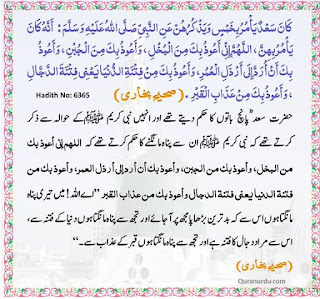 كَانَ سَعْدٌ يَأْمُرُ بِخَمْسٍ وَيَذْكُرُهُنَّ عَنِ النَّبِيِّ صَلَّى اللَّهُ عَلَيْهِ وَسَلَّمَ: أَنَّهُ كَانَ
يَأْمُرُ بِهِنَّ، اللَّهُمَّ إِنِّي أَعُوذُ بِكَ مِنَ الْبُخْلِ، وَأَعُوذُ بِكَ مِنَ الْجُبْنِ، وَأَعُوذُ
بِكَ أَنْ أُرَدَّ إِلَى أَرْذَلِ الْعُمُرِ، وَأَعُوذُ بِكَ مِنْ فِتْنَةِ الدُّنْيَا يَعْنِي فِتْنَةَ الدَّجَّالِ
، وَأَعُوذُ بِكَ مِنْ عَذَابِ الْقَبْرِ. (صحیح بخاری) Hadith No: 6365
حضرت سعدؓ پانچ باتوں کا حکم دیتے تھے اور انہیں نبی کریم ﷺ کے حوالہ سے ذکر
کرتے تھے کہ نبی کریم ﷺ ان سے پناہ مانگنے کا حکم کرتے تھے کہ اللهم إني أعوذ بك
من البخل، وأعوذ بك من الجبن، وأعوذ بك أن أرد إلى أرذل العمر، وأعوذ بك من
فتنة الدنيا يعني فتنة الدجال وأعوذ بك من عذاب القبر ”اے اللہ! میں تیری پناہ
مانگتا ہوں اس سے کہ بدترین بڑھاپا مجھ پر آجائے اور تجھ سے پناہ مانگتا ہوں دنیا کے فتنہ سے،
اس سے مراد دجال کا فتنہ ہے اور تجھ سے پناہ مانگتا ہوں قبر کے عذاب سے۔“
(صحیح بخاری)
Quranurdu.com